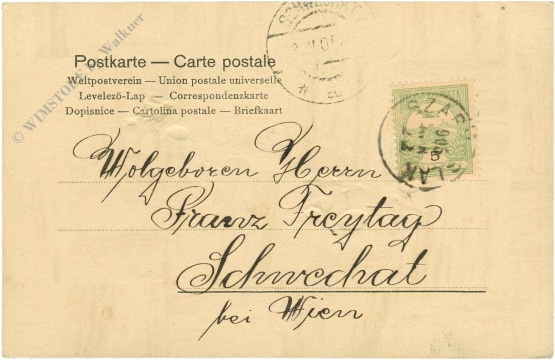 SCHWECHAT
Postkarte — Carte postale
Weltpostverein — Union postale universelle
Levelező-Lap — Correspondenzkarte
Dopisnice — Cartolina postale — Briefkart
© WIMSTORE E. Walkner
5
Wolgeboren Herrn
Franz Freytag
Schwechat
bei Wien